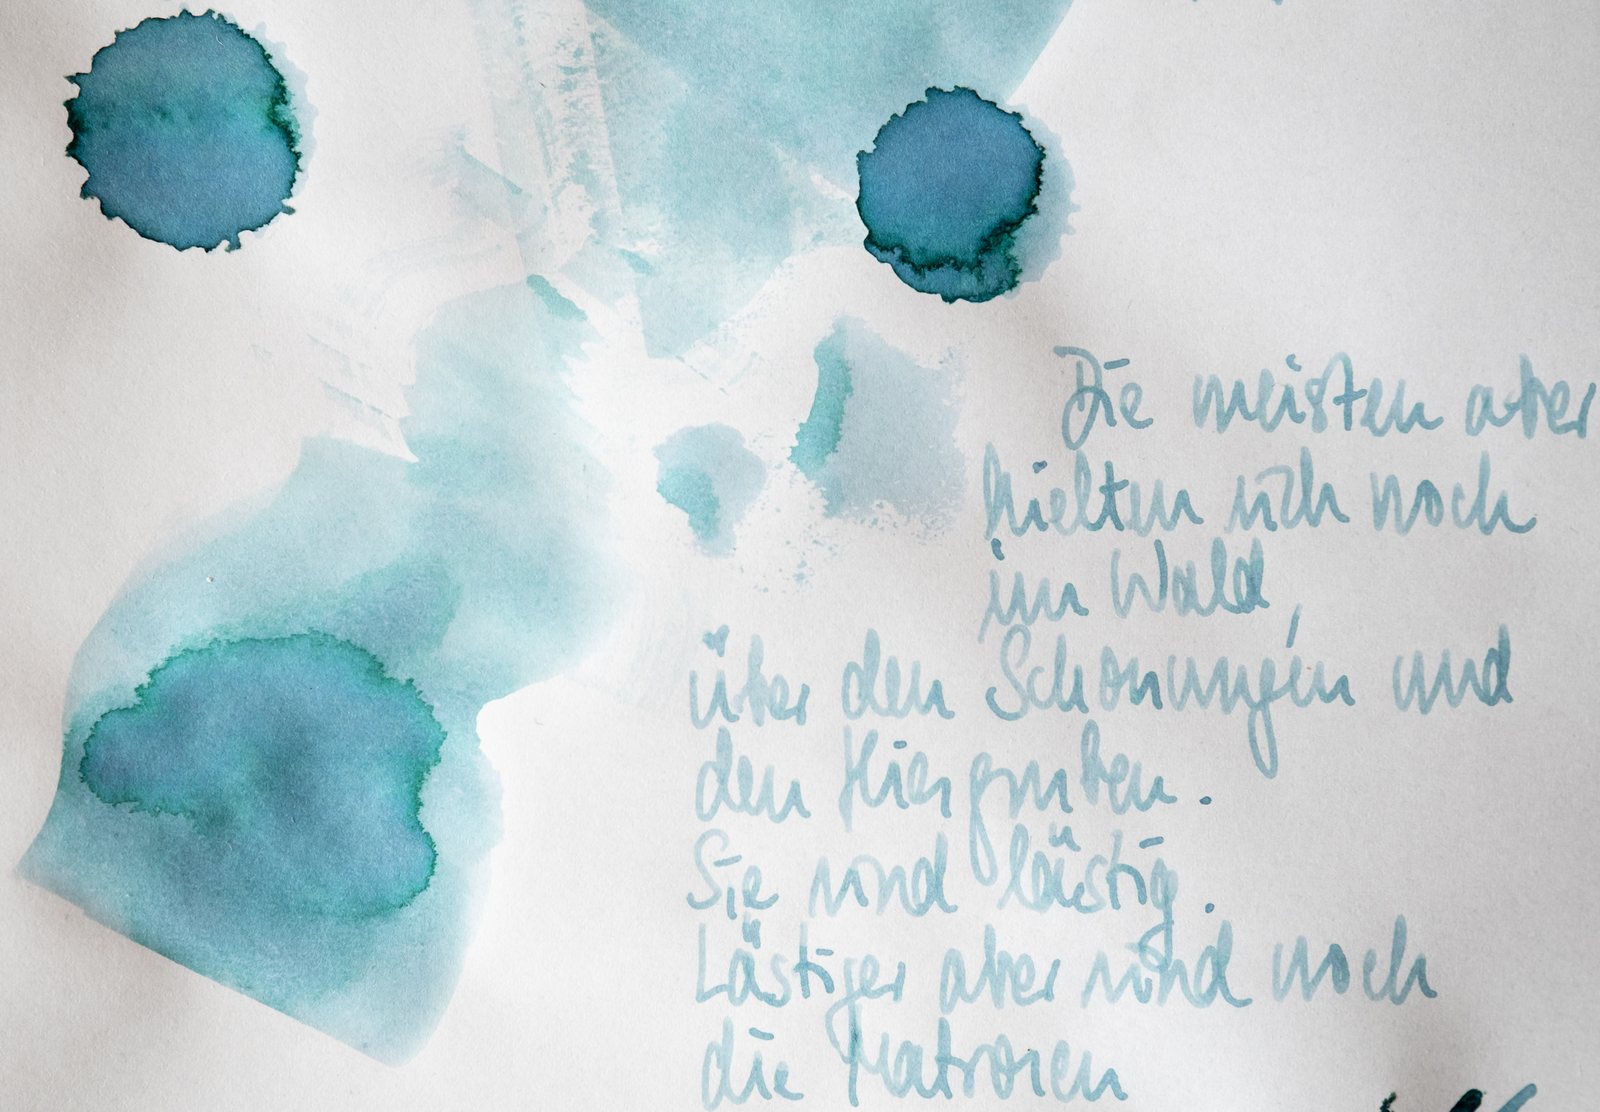 Die meisten aber
hielten sich noch
im Wald,
über den Schonungen und
den Kiesgruben.
Sie sind lästig.
Lästiger aber sind noch
die Matrosen